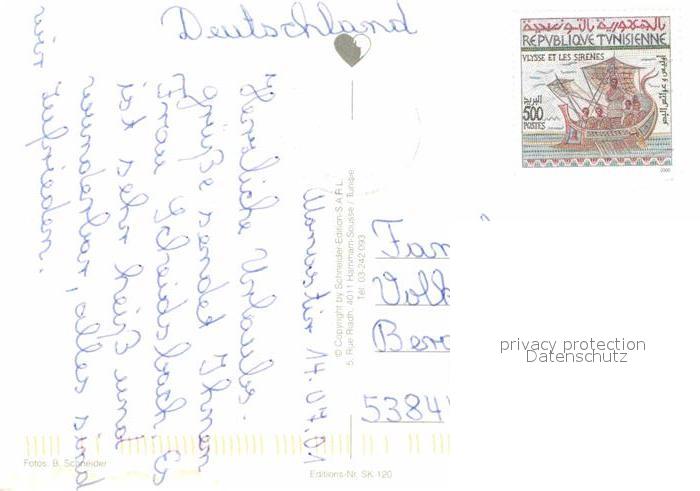 Deutschland
Monastir 14.07.01
Herzliche Urlaubs-
grüße sendet Ihnen
Frau Scheiderbach. Es
ist sehr heiß und
wunderbar, alles sind
wir zufrieden.
بالجمهورية التونسية
REPVBLIQUE TVNISIENNE
VLYSSE ET LES SIRENES
أوليس و عرائس البحر
البريد
500
POSTES
2000
© Copyright by Schneider-Edition-S.A.R.L.
5, Rue Riadh, 4011 Hammam-Sousse / Tunisie
Tél. 03-242 093
Fam
Volk
Berg
5384
privacy protection
Datenschutz
Fotos: B. Schneider
Editions-Nr. SK 120